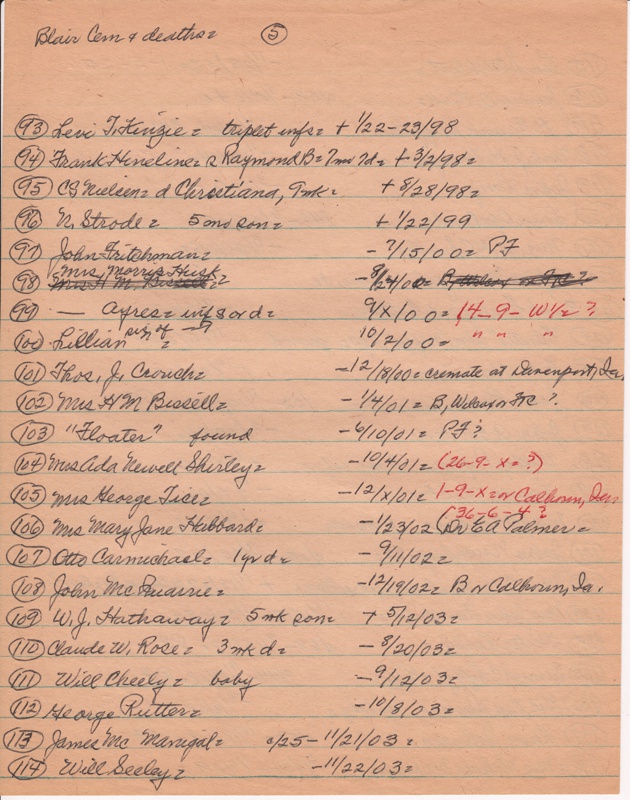 Blair Cem & deaths= ⑤
(93) Levi T. Kinzie= triplet infs= + 1/22-23/98
(94) Frank Hineline= s Raymond B= 7mo 7d= + 3/2/98=
(95) CS Nielsen= d Christiana, 9mk= + 8/28/98=
(96) N. Strode= 5 mo son= + 1/22/99
(97) John Fritchman= - 7/15/00= PF
Mrs. Morris Husk
(98) Mrs H M Bissell= - 8/24/00= B, Wilcox or FRC?
(99) — Ayres= inf s or d= 9/x/00= (4-9-W½= ?
(100) Lillian sis of = 10/2/00= " " "
(101) Thos. J. Crouch= -12/18/00= cremate at Davenport, Ia,
(102) Mrs H M Bissell= - 1/4/01= B, Wilcox or FRC ?
(103) "Floater" found - 6/10/01= PF?
(104) Mrs Ada Newell Shirley= - 10/4/01= (26-9-x= ?)
(105) Mrs George Tise= -12/x/01= 1-9-x= or Calhoun,
(36-6-4?
(106) Mrs Mary Jane Hubbard= - 1/23/02 (Dr E A Palmer=
(107) Otto Carmichael= 1yr d= - 9/11/02=
(108) John McQuarrie= -12/19/02= B or Calhoun, Ia.
(109) W. J. Hathaway= 5 mk son= + 5/12/03=
(110) Claude W. Rose= 3 mk d= - 8/20/03=
(111) Will Cheely= baby - 9/12/03=
(112) George Rutter= - 10/8/03=
(113) James McManigal= c/25 - 11/21/03=
(114) Will Seeley= - 11/22/03=